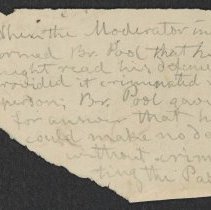 When the Moderator in
formed Br. Pool that he
might read his defence
provided it criminated no
person; Br. Pool gave
for answer that he
could make no de
without crimi
ting the Pas